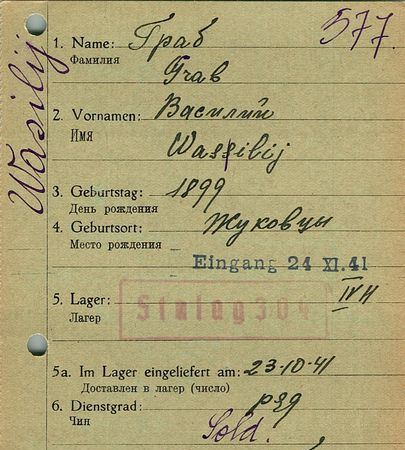 577.
Wasilij
1. Name: Граб
Фамилия
Grab
2. Vornamen: Василий
Имя
Wassilij
3. Geburtstag: 1899
День рождения
4. Geburtsort: Жуковцы
Место рождения
Eingang 24 XI. 41
5. Lager: Stalag 304 IV H
Лагер
5a. Im Lager eingeliefert am: 23-10-41
Доставлен в лагер (число)
6. Dienstgrad: ряд
Чин
Sold.